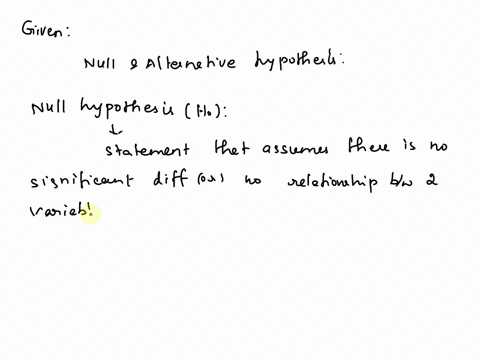 Given:
Null & Alternetive hypothesis:
Null hypothesis (H₀):
↓
statement that assumes there is no
significant diff (or) no relationship b/w 2
varieb